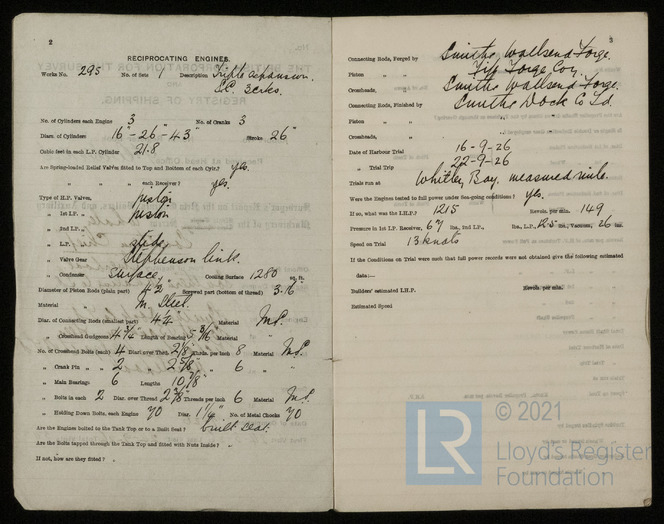 2
RECIPROCATING ENGINES.
Works No. 295 No. of Sets 1 Description Triple expansion.
S.C. 3 crks.
No. of Cylinders each Engine 3 No. of Cranks 3
Diars. of Cylinders 16" - 26 - 43" Stroke 26"
Cubic feet in each L.P. Cylinder 21.8
Are Spring-loaded Relief Valves fitted to Top and Bottom of each Cylr.? yes.
" " " each Receiver? yes.
Type of H.P. Valves, piston
" 1st I.P. " piston
" 2nd I.P. "
" L.P. " slide
" Valve Gear Stephenson link.
" Condenser Surface, Cooling Surface 1280 sq. ft.
Diameter of Piston Rods (plain part) 4½ Screwed part (bottom of thread) 3.16
Material M. Steel.
Diar. of Connecting Rods (smallest part) Material M.S.
" Crosshead Gudgeons 4¾" Length of Bearing 5 3/16 Material
No. of Crosshead Bolts (each) 4 Diar. over Thrd. 2⅛" Thrds. per inch 8 Material M.S.
" Crank Pin " " 2 " 2⅝" " 6 "
" Main Bearings 6 Lengths 10⅞"
" Bolts in each 2 Diar. over Thread 2⅞" Threads per inch 6 Material M.S.
" Holding Down Bolts, each Engine 70 Diar. No. of Metal Chocks 70
Are the Engines bolted to the Tank Top or to a Built Seat? built seat.
Are the Bolts tapped through the Tank Top and fitted with Nuts Inside?
If not, how are they fitted?
3
Connecting Rods, Forged by Smiths Wallsend Forge.
Piston " " Forge Coy.
Crossheads, " Smiths Wallsend Forge.
Connecting Rods, Finished by Smiths Dock Co Ld.
Piston " "
Crossheads, "
Date of Harbour Trial 16-9-26
" Trial Trip 22-9-26
Trials run at Whitley Bay, measured mile.
Were the Engines tested to full power under Sea-going conditions? yes.
If so, what was the I.H.P.? 1215 Revols. per min. 149
Pressure in 1st I.P. Receiver, 67 lbs., 2nd I.P., lbs., L.P., lbs., Vacuum, 26 ins.
Speed on Trial 13 knots
If the Conditions on Trial were such that full power records were not obtained give the following estimated
data:—
Builders' estimated I.H.P. Revols. per min.
Estimated Speed
© 2021
LR
Lloyd's Register
Foundation